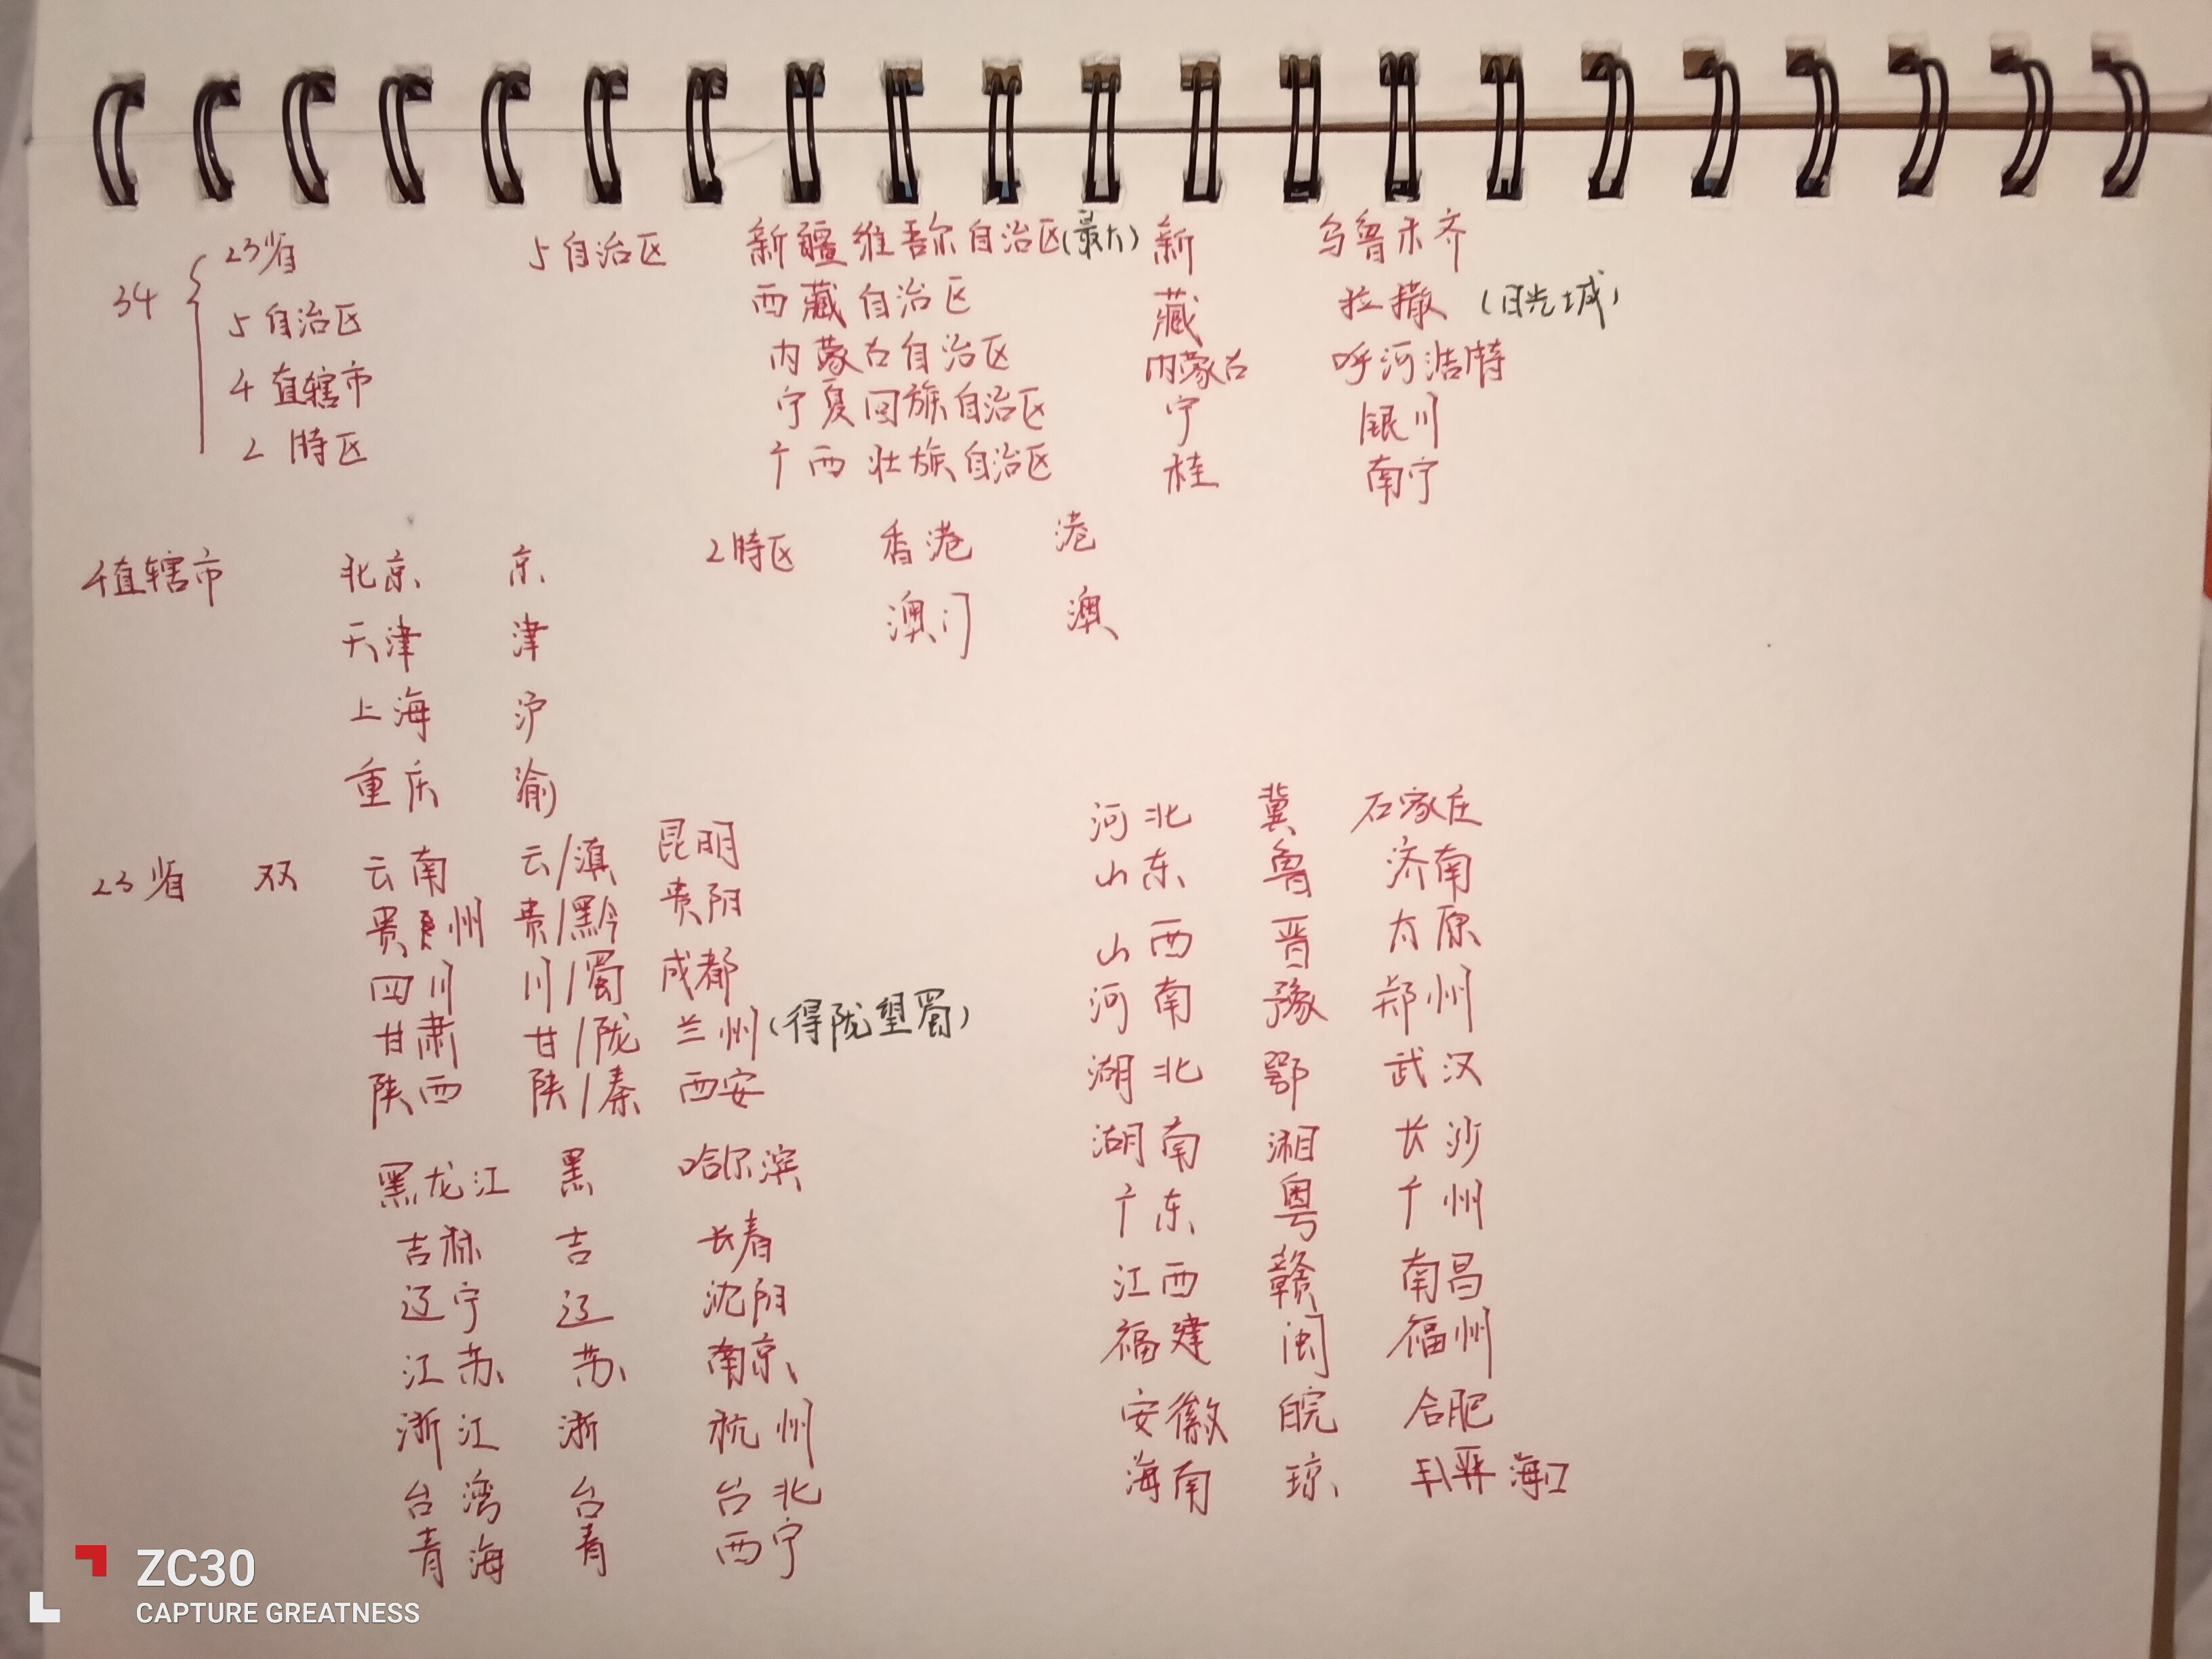 34
23省
5自治区
4直辖市
2特区
5自治区
新疆维吾尔自治区(最大) 新 乌鲁木齐
西藏自治区 藏 拉撒 (日光城)
内蒙古自治区 内蒙古 呼河浩特
宁夏回族自治区 宁 银川
广西壮族自治区 桂 南宁
4直辖市 北京 京
天津 津
上海 沪
重庆 渝
2特区 香港 港
澳门 澳
23省 双 云南 云/滇 昆明
贵州 贵/黔 贵阳
四川 川/蜀 成都
甘肃 甘/陇 兰州(得陇望蜀)
陕西 陕/秦 西安
黑龙江 黑 哈尔滨
吉林 吉 长春
辽宁 辽 沈阳
江苏 苏 南京
浙江 浙 杭州
台湾 台 台北
青海 青 西宁
河北 冀 石家庄
山东 鲁 济南
山西 晋 太原
河南 豫 郑州
湖北 鄂 武汉
湖南 湘 长沙
广东 粤 广州
江西 赣 南昌
福建 闽 福州
安徽 皖 合肥
海南 琼 海口
ZC30
CAPTURE GREATNESS